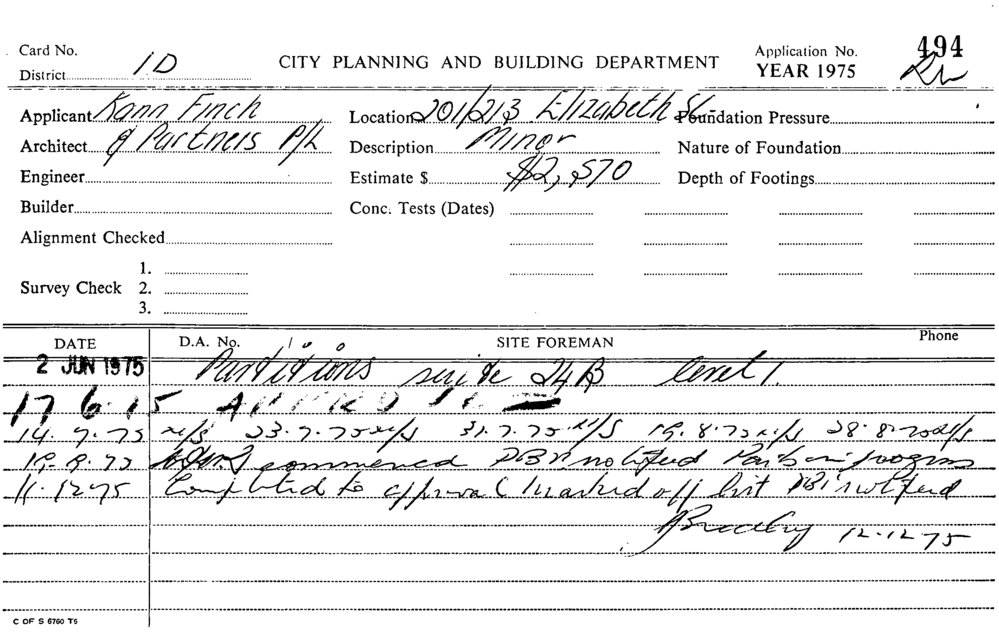 Card No.
District 1D
CITY PLANNING AND BUILDING DEPARTMENT
Application No. 494
YEAR 1975
Applicant Kann Finch
Architect & Partners P/L
Engineer
Builder
Alignment Checked
Survey Check 1.
2.
3.
Location 201/213 Elizabeth St
Description Minor
Estimate $ $2,570
Conc. Tests (Dates)
Foundation Pressure
Nature of Foundation
Depth of Footings
DATE D.A. No. SITE FOREMAN Phone
2 JUN 1975 Partitions suite 24B level 1.
17 6.75 APPROVED
14.7.75 n/s 23.7.75 n/s 31.7.75 n/s 19.8.75 n/s 28.8.75 n/s
19.9.75 commenced DBI notified
11.12.75 Completed to approval marked off list DBI notified
Bradley 12.12.75
C OF S 6760 T6